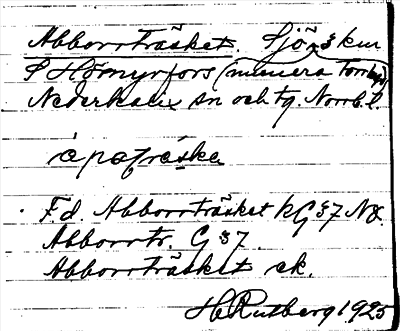 Abborrträsket. Sjö, 3 km
S Hömyrfors (numera Tomby)
Nederkalix sn och tg. Norrb. l.
àpotræska
F.d. Abborrträsket k G 37 NO.
Abborrtr. G 37.
Abborrträsket ek.
H. Rutberg 1925